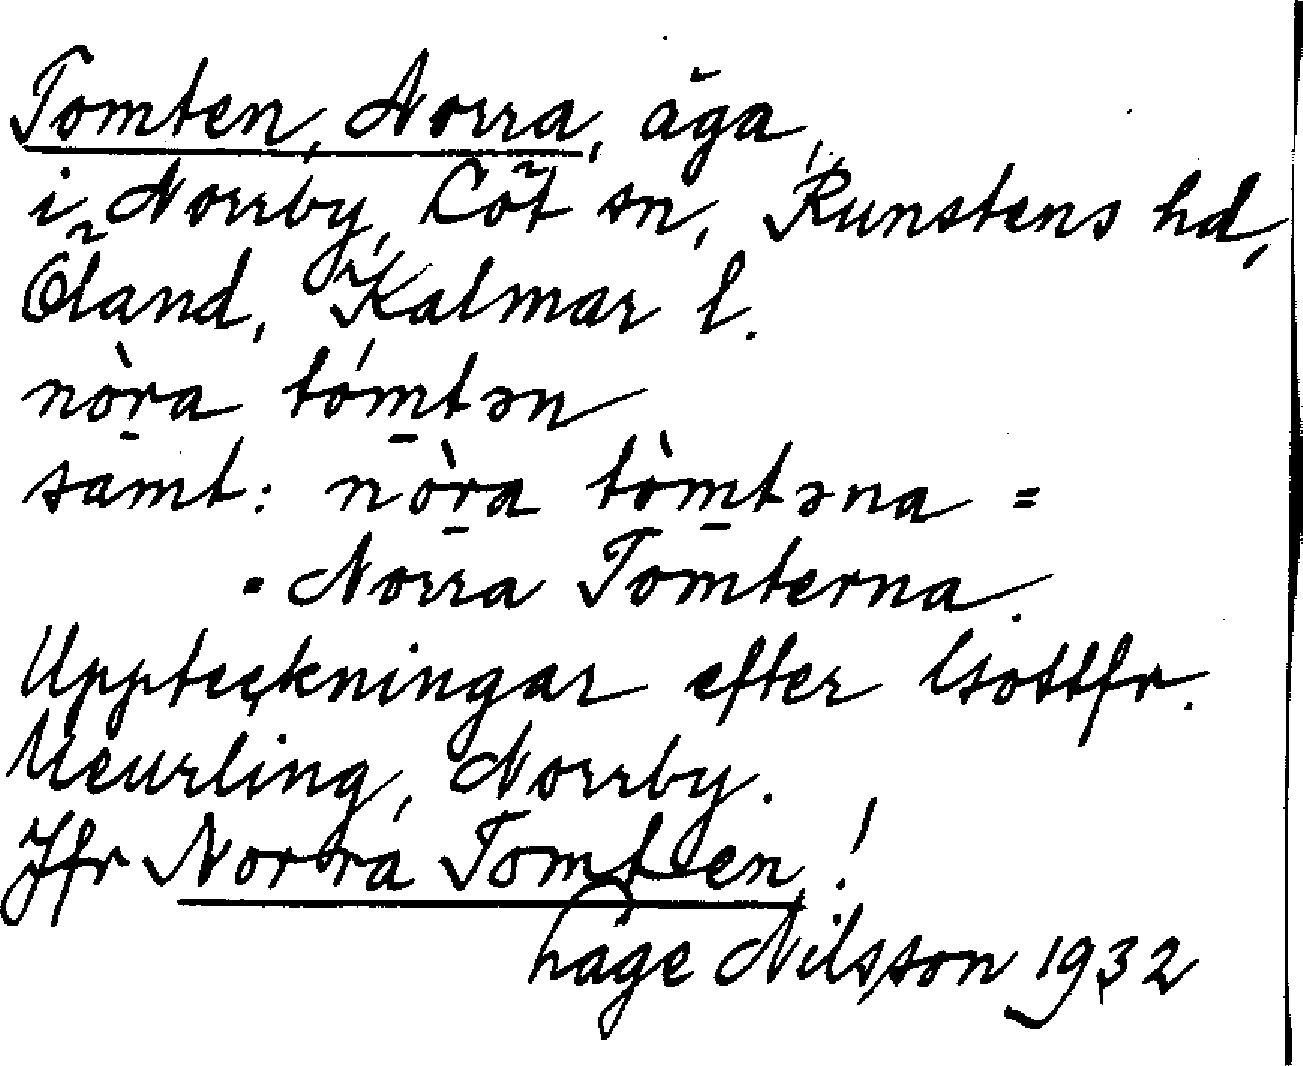 Tomten, Norra, äga
i Norrby, Löt sn, Runstens hd,
Öland, Kalmar l.
nòra tómtən
samt: nòra tòmtəna =
= Norra Tomterna.
Uppteckningar efter Gottfr.
Meurling, Norrby.
Jfr Norra Tomten!
Låge Nilsson 1932